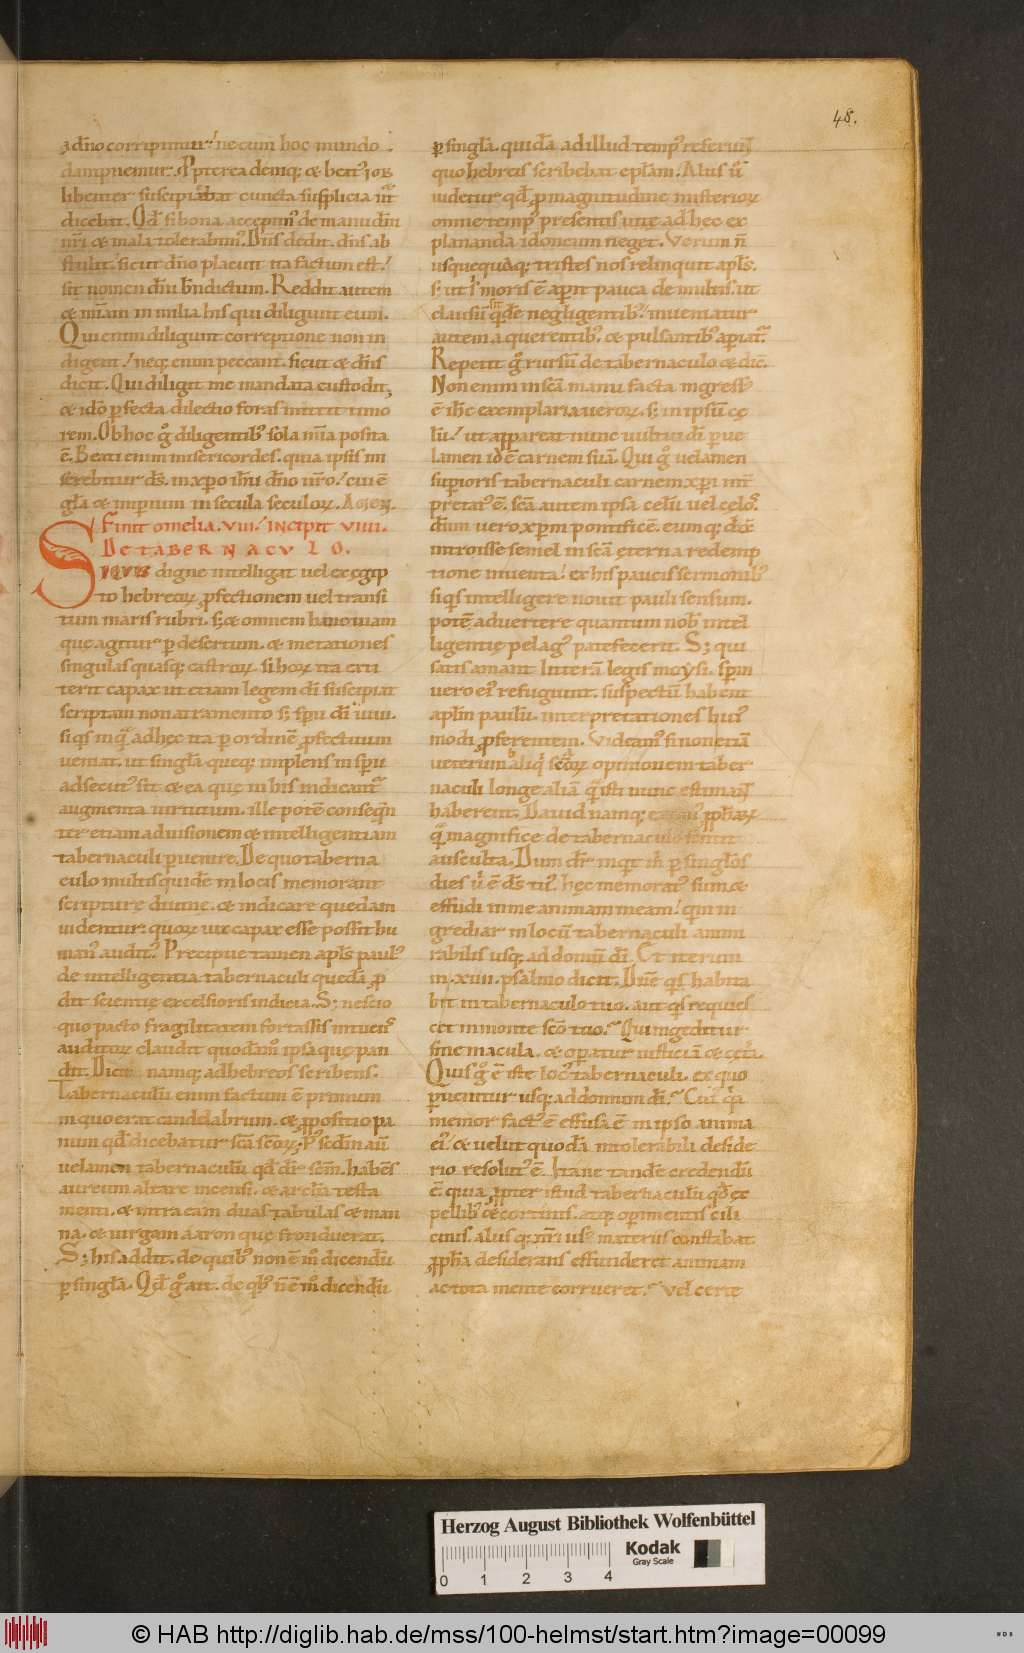 48.
a dn̄o corripimur / ne cum hoc mundo
dampnemur. Ppterea deniq; & beatꝰ ioB
libenter suscipiebat cuncta supplicia
dicebat. Qd̄ si bona accepimꝰ de manu dn̄i
nr̄i & mala tolerabimꝰ. Dn̄s dedit. dn̄s ab
stulit. sicut dn̄o placuit ita factum est /
sit nomen dn̄i bn̄dictum. Reddit autem
& mīam in milia his qui diligunt eum.
Qui enim diligunt correptione non in
digent / neq; enim peccant. sicut & dn̄s
dicit. Qui diligit me mandata custodit,
& idō ꝑfecta dilectio foras mittit timo
rem. Ob hoc gͦ diligentibꝰ sola mīa posita
ē. Beati enim misericordes. quia ipsis mi
serebitur ds̄. in xp̄o ihū dn̄o nr̄o / cui ē
gl̄a & imperium in secula seculoꝝ. Amen.
Finit omelia. viii. / incipit viiii.
De tabernaculo.
Siquis digne intelligat vel ex egip
to hebreoꝝ ꝓfectionem vel transi
tum maris rubri. s; & omnem hanc viam
que agitur ꝑ desertum. & metationes
singulas quasq; castroꝝ. si hoꝝ ita exti
terit capax ut etiam legem dī suscipiat
scriptam non atramento s; spū dī vivi.
siqs in quā ad hec ita ꝑ ordinē ꝓfectuum
veniat. ut singula queq; implens in spū
adsecutꝰ sit & ea quę in his indicantᷣ
augmenta virtutum. ille potē consequen
ter etiam ad visionem & intelligentiam
tabernaculi ꝑvenire. De quo taberna
culo multis quidē in locis memorant
scripturę divine. & indicare quedam
videntur. quoꝝ vix capax esse possit hu
manꝰ auditꝰ. Precipue tamen apl̄s paulꝰ
de intelligentia tabernaculi quedā ꝓ
dit scientię excelsioris indicia. S; nescio
quo pacto fragilitatem fortassis intuens
auditoꝝ claudit quodāmͦ ipsa quę pan
dit. Dicit namq; ad hebreos scribens.
Tabernaculū enim factum ē primum
in quo erat candelabrum. & ꝓpositio pa
num qd̄ dicebatur sc̄a sc̄oꝝ; Pꝰ secdm aū
velamen tabernaculū. qd̄ dr̄ sc̄m. habens
aureum altare incensi. & archā testa
menti. & intra eam duas tabulas & man
na. & virgam aaron quę fronduerat.
S; his addit. de quibꝰ non ē mͦ dicendū
ꝑ singula. Qd̄ gͦ ait. de qbꝰ n̄ ē mͦ dicendū
ꝑ singula. quidā ad illud tempꝰ referunt
quo hebreis scribebat eplām. Aliis ū
videtur qd̄ ꝓ magnitudine misterioꝝ
omne tempꝰ presentis vitę ad hec ex
plananda idoneum neget. Verum n̄
usquequaq; tristes nos relinquit apl̄s.
s; ut ei moris ē aꝑit pauca de multis. ut
clausū sit qdē negligentibꝰ / inveniatur
autem a querentibꝰ. & pulsantibꝰ aꝑiatᷣ.
Repetit gͦ rursū de tabernaculo & dic̄.
Non enim in sc̄a manu facta ingressꝰ
ē ih̄c exemplaria veroꝝ. s; in ipsū cę
lū / ut appareat nunc vultui dī ꝑ ve
lamen id ē carnem suā. Qui gͦ velamen
suꝑioris tabernaculi carnem xpī int̄
pretatᷣ ē. sc̄a autem ipsa celū vel celos.
dum vero xp̄m pontificē eumq; dicat
introisse semel in sc̄a ęterna redemp
tione inventa / ex his paucis sermonibꝰ
siqs intelligere novit pauli sensum.
potē advertere quantum nob intel
ligentię pelagꝰ patefecerit. S; qui
satis amant litterā legis moysi. spm
vero eiꝰ refugiunt. suspectū habent
aplm paulū. interpretationes huiꝰ
modi ꝓferentem. Videamꝰ si non etiā
veterum aliqui sc̄oꝝ opinionem taber
naculi longe aliā quā isti nunc estimant
haberent. David namq; eximiꝰ ꝓph̄aꝝ
quā magnifice de tabernaculo sentit
ausculta. Dum dr̄ inqt m ꝑ singulos
dies ubi ē ds̄ tuꝰ. hęc memoratꝰ sum &
effudi in me animam meam / qm in
grediar in locū tabernaculi admi
rabilis usq; ad domū dī. Et iterum
in xiiii. psalmo dicit. Dn̄e qs habita
bit in tabernaculo tuo. aut qs requies
cet in monte sc̄o tuo? Qui ingreditur
sine macula. & oꝑatur iusticiā & cetera.
Quis gͦ ē iste locꝰ tabernaculi. ex quo
ꝑvenitur usq; ad domum dī? Cuiꝰ qā
memor factꝰ ē effusa ē in ipso anima
eiꝰ & velut quodā intolerabili deside
rio resolutꝰ ē. Itane tandē credendū
ē. quia ꝓpter istud tabernaculū qd̄ ex
pellibꝰ & cortinis. atq; oꝑimentis cili
cinis. aliisq; nr̄i usꝰ materiis constabat.
ꝓph̄a desiderans effunderet animam
ac tota mente corrueret? Vel certe
Herzog August Bibliothek Wolfenbüttel
Kodak
Gray Scale
0 1 2 3 4
© HAB http://diglib.hab.de/mss/100-helmst/start.htm?image=00099